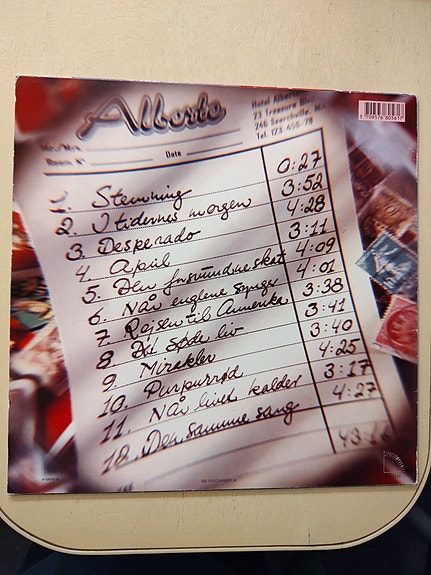 Alberto
Hotel Alberto
23 Treasure Blv.
246 Searchville, MA
Tel. 123-456-78
Mr./Mrs.
Room Nº Date
1. Stemning 0:27
2. I tidernes morgen 3:52
3. Desperado 4:28
4. April 3:11
5. Den forsvundne skat 4:09
6. Når englene synger 4:01
7. Rejsen til Amerika 3:38
8. Det søde liv 3:41
9. Mirakler 3:40
10. Purpurrød 4:25
11. Når livet kalder 3:17
12. Den samme sang 4:27
5 709576 805617